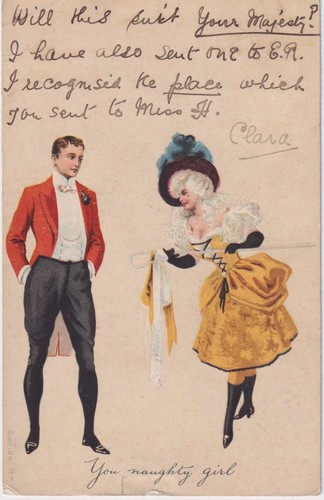 Will this suit Your Majesty?
I have also sent one to E.R.
I recognised the place which
you sent to Miss H.
Clara
You naughty girl